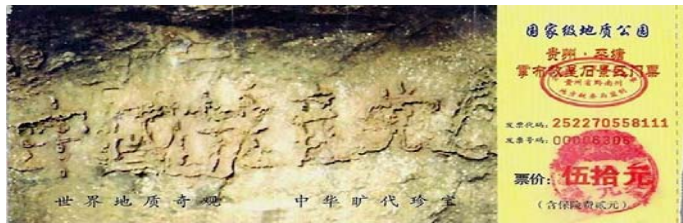 中国共产党
世界地质奇观 中华旷代珍宝
国家级地质公园
贵州·平塘
掌布救星石景区门票
发票代码:252270558111
发票号码:00006306
票价:伍拾元
(含保险费贰元)